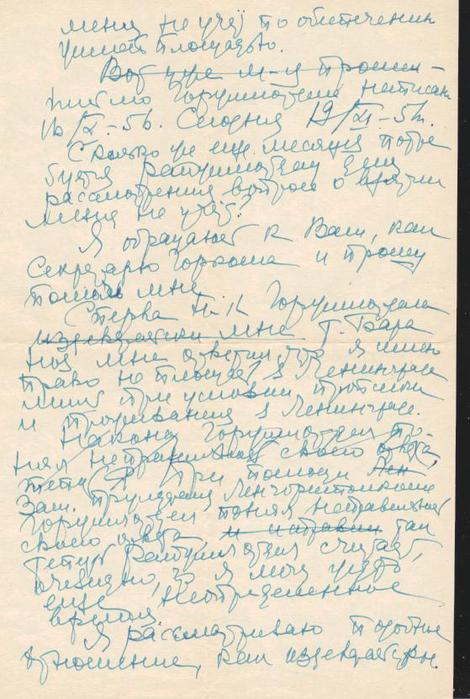 меня на учёт по обеспечению
жилой площадью.
Вот уже м-ц прошел
письмо Горжилотдела написано
16/X-56. Сегодня 19/XI-56.
Сколько уж еще месяцев потре
буется Райжилотделу для
рассмотрения вопроса о взятии
меня на учёт?
Я обращаюсь к Вам, как
Секретарю Горкома и прошу
помочь мне.
Сперва Н-к Горжилотдела
издевательски мне т. Бара
нов мне ответил, что я имею
право на площадь в Ленинграде
лишь при условии прописки
и проживания в Ленинграде.
Наконец Горжилотдел по-
нял неправильность своего ответа,
теперь при помощи
Зам. председателя Ленгорисполкома
Горжилотдел понял неправильность
своего ответа и исправил так
теперь Райжилотдел считает,
очевидно, что я могу ждать
еще неопределенное
время.
Я рассматриваю подобное
отношение, как издевательство.